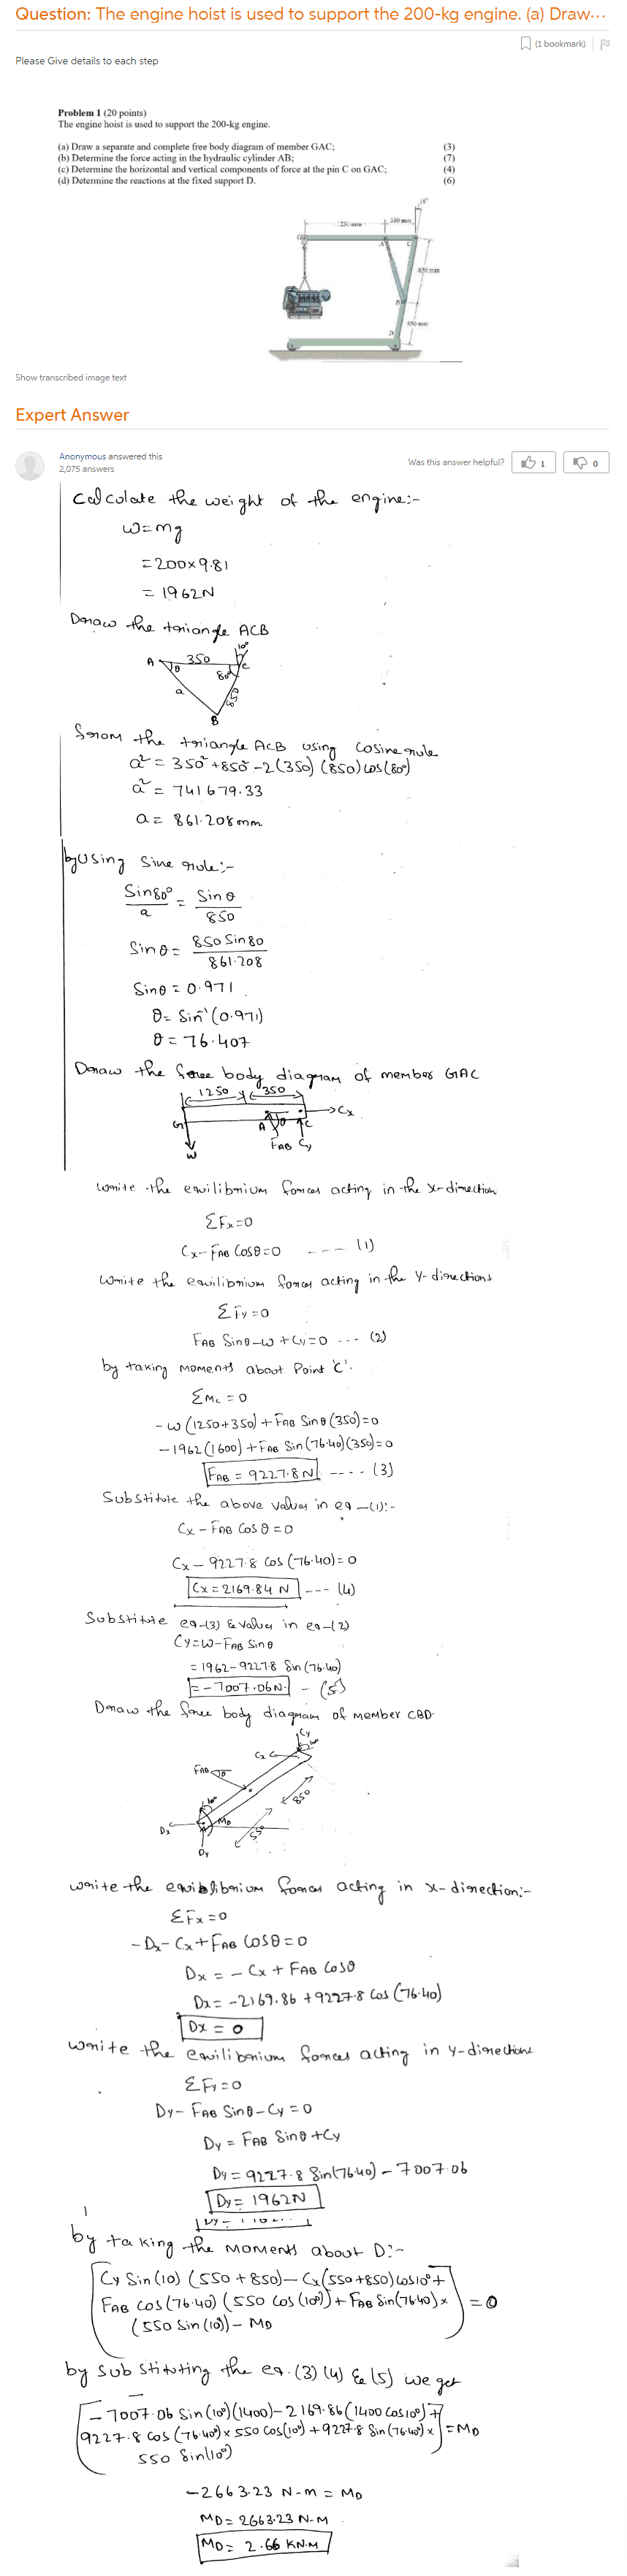 Question: The engine hoist is used to support the 200-kg engine. (a) Draw...
(1 bookmark)
Please Give details to each step
Problem 1 (20 points)
The engine hoist is used to support the 200-kg engine.
(a) Draw a separate and complete free body diagram of member GAC; (3)
(b) Determine the force acting in the hydraulic cylinder AB; (7)
(c) Determine the horizontal and vertical components of force at the pin C on GAC; (4)
(d) Determine the reactions at the fixed support D. (6)
10°
1250 mm
350 mm
G
A
C
850 mm
B
550 mm
D
Show transcribed image text
Expert Answer
Anonymous answered this
2,075 answers
Was this answer helpful?
1
0
Calculate the weight of the engine:-
W=mg
=200×9.81
= 1962N
Draw the triangle ACB
10°
A θ 350 C
80°
a 850
B
From the triangle ACB using cosine rule
a² = 350²+850²-2(350)(850)cos(80°)
a² = 741679.33
a = 861.208mm
by using Sine rule:-
Sin80°/a = Sinθ/850
Sinθ = 850 Sin80/861.208
Sinθ = 0.971
θ = Sin⁻¹(0.971)
θ = 76.407
Draw the force body diagram of member GAC
1250 350
G A θ C →Cx
W FAB Cy
Write the equilibrium forces acting in the x-direction
ΣFx=0
Cx-FAB Cosθ=0 ---- (1)
Write the equilibrium forces acting in the y-directions
ΣFy=0
FAB Sinθ-W+Cy=0 --- (2)
by taking moments about Point 'C'.
ΣMc = 0
-W(1250+350)+FAB Sinθ(350)=0
-1962(1600)+FAB Sin(76.40)(350)=0
FAB = 9227.8N ---- (3)
Substitute the above values in eq-(1):-
Cx - FAB Cosθ = 0
Cx - 9227.8 cos(76.40)=0
Cx = 2169.84 N --- (4)
Substitute eq-(3) & values in eq-(2)
Cy=W-FAB Sinθ
= 1962-9227.8 Sin(76.40)
= -7007.06N. - (5)
Draw the force body diagram of member CBD.
Cy
Cx 10°
FAB θ
850
10°
Dx MD
550
Dy
Write the equilibrium forces acting in x-direction:-
ΣFx=0
-Dx-Cx+FAB COSθ=0
Dx = -Cx + FAB Cosθ
Dx = -2169.86 +9227.8 Cos(76.40)
Dx = 0
Write the equilibrium forces acting in y-directions
ΣFy=0
Dy- FAB Sinθ-Cy=0
Dy = FAB Sinθ+Cy
Dy = 9227.8 Sin(76.40)-7007.06
Dy= 1962N
by taking the moments about D:-
Cy Sin(10)(550+850)-Cx(550+850)cos10°+
FAB cos(76.40)(550 cos(10°))+FAB Sin(76.40)×
(550 Sin(10))-MD = 0
by substituting the eq.(3)(4) & (5) we get
-7007.06 Sin(10°)(1400)-2169.86(1400 cos10°)+
9227.8 cos(76.40°)×550 cos(10°)+9227.8 Sin(76.40°)× =MD
550 Sin(10°)
-2663.23 N-m = MD
MD = 2663.23 N-M
MD = 2.66 KN.M